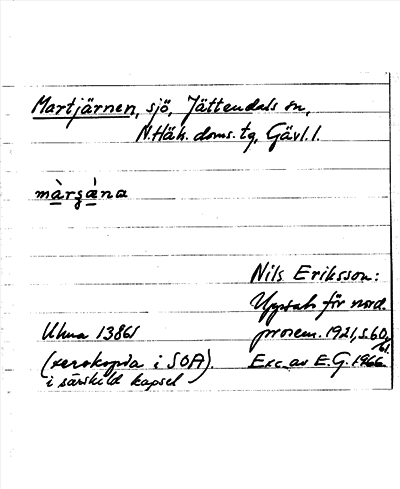 Martjärnen, sjö, Jättendals sn,
N. Häls. doms. tg, Gävl. l.
màrgǻna
Nils Eriksson:
Uppsats för nord.
prosem. 1921, s. 60,
61.
Uluna 13861
(xerokopia i SOA).
i särskild kapsel
Exc. av E.G. 1966